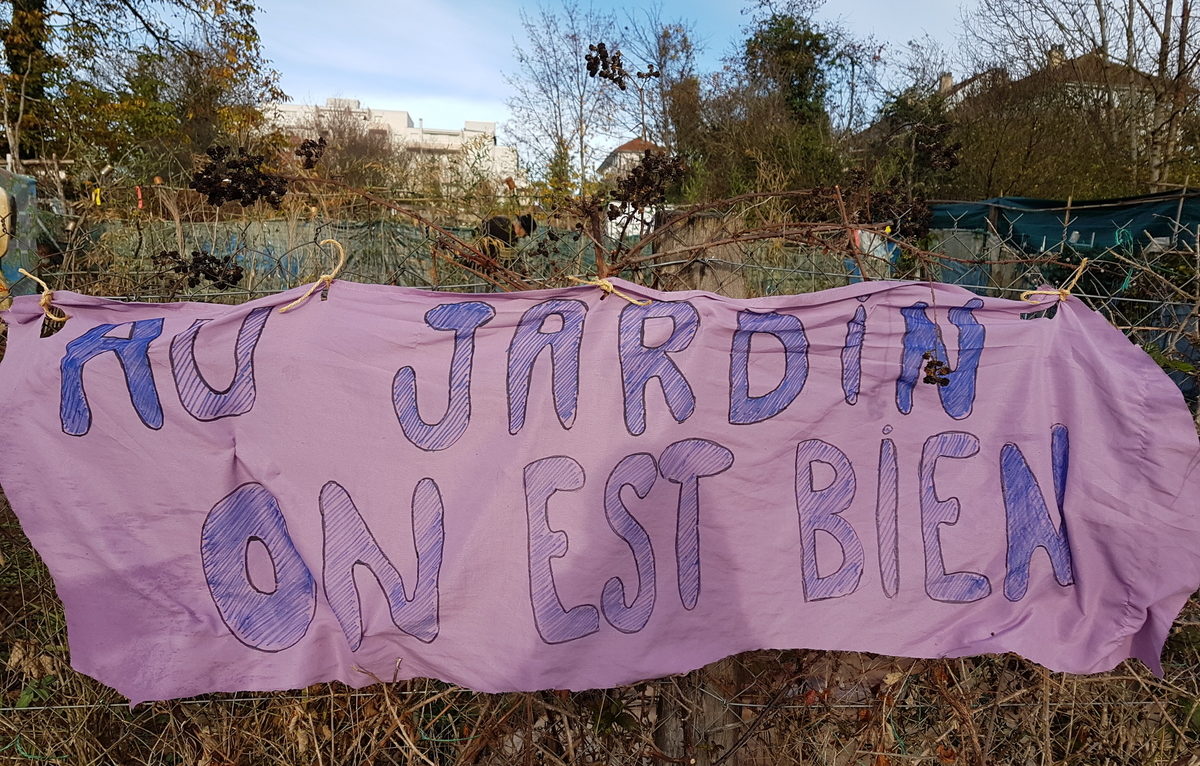 AU JARDiN
ON EST BiEN